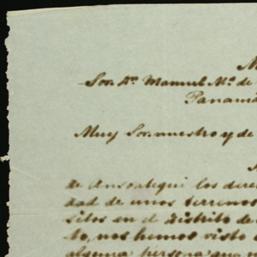 M
Sor. Dn. Manuel Ma. de
Panamá
Muy Sor. nuestro y de
de Ansoategui los dere
dad de unos terrenos
sitos en el distrito de
to, nos hemos visto
alguna persona que